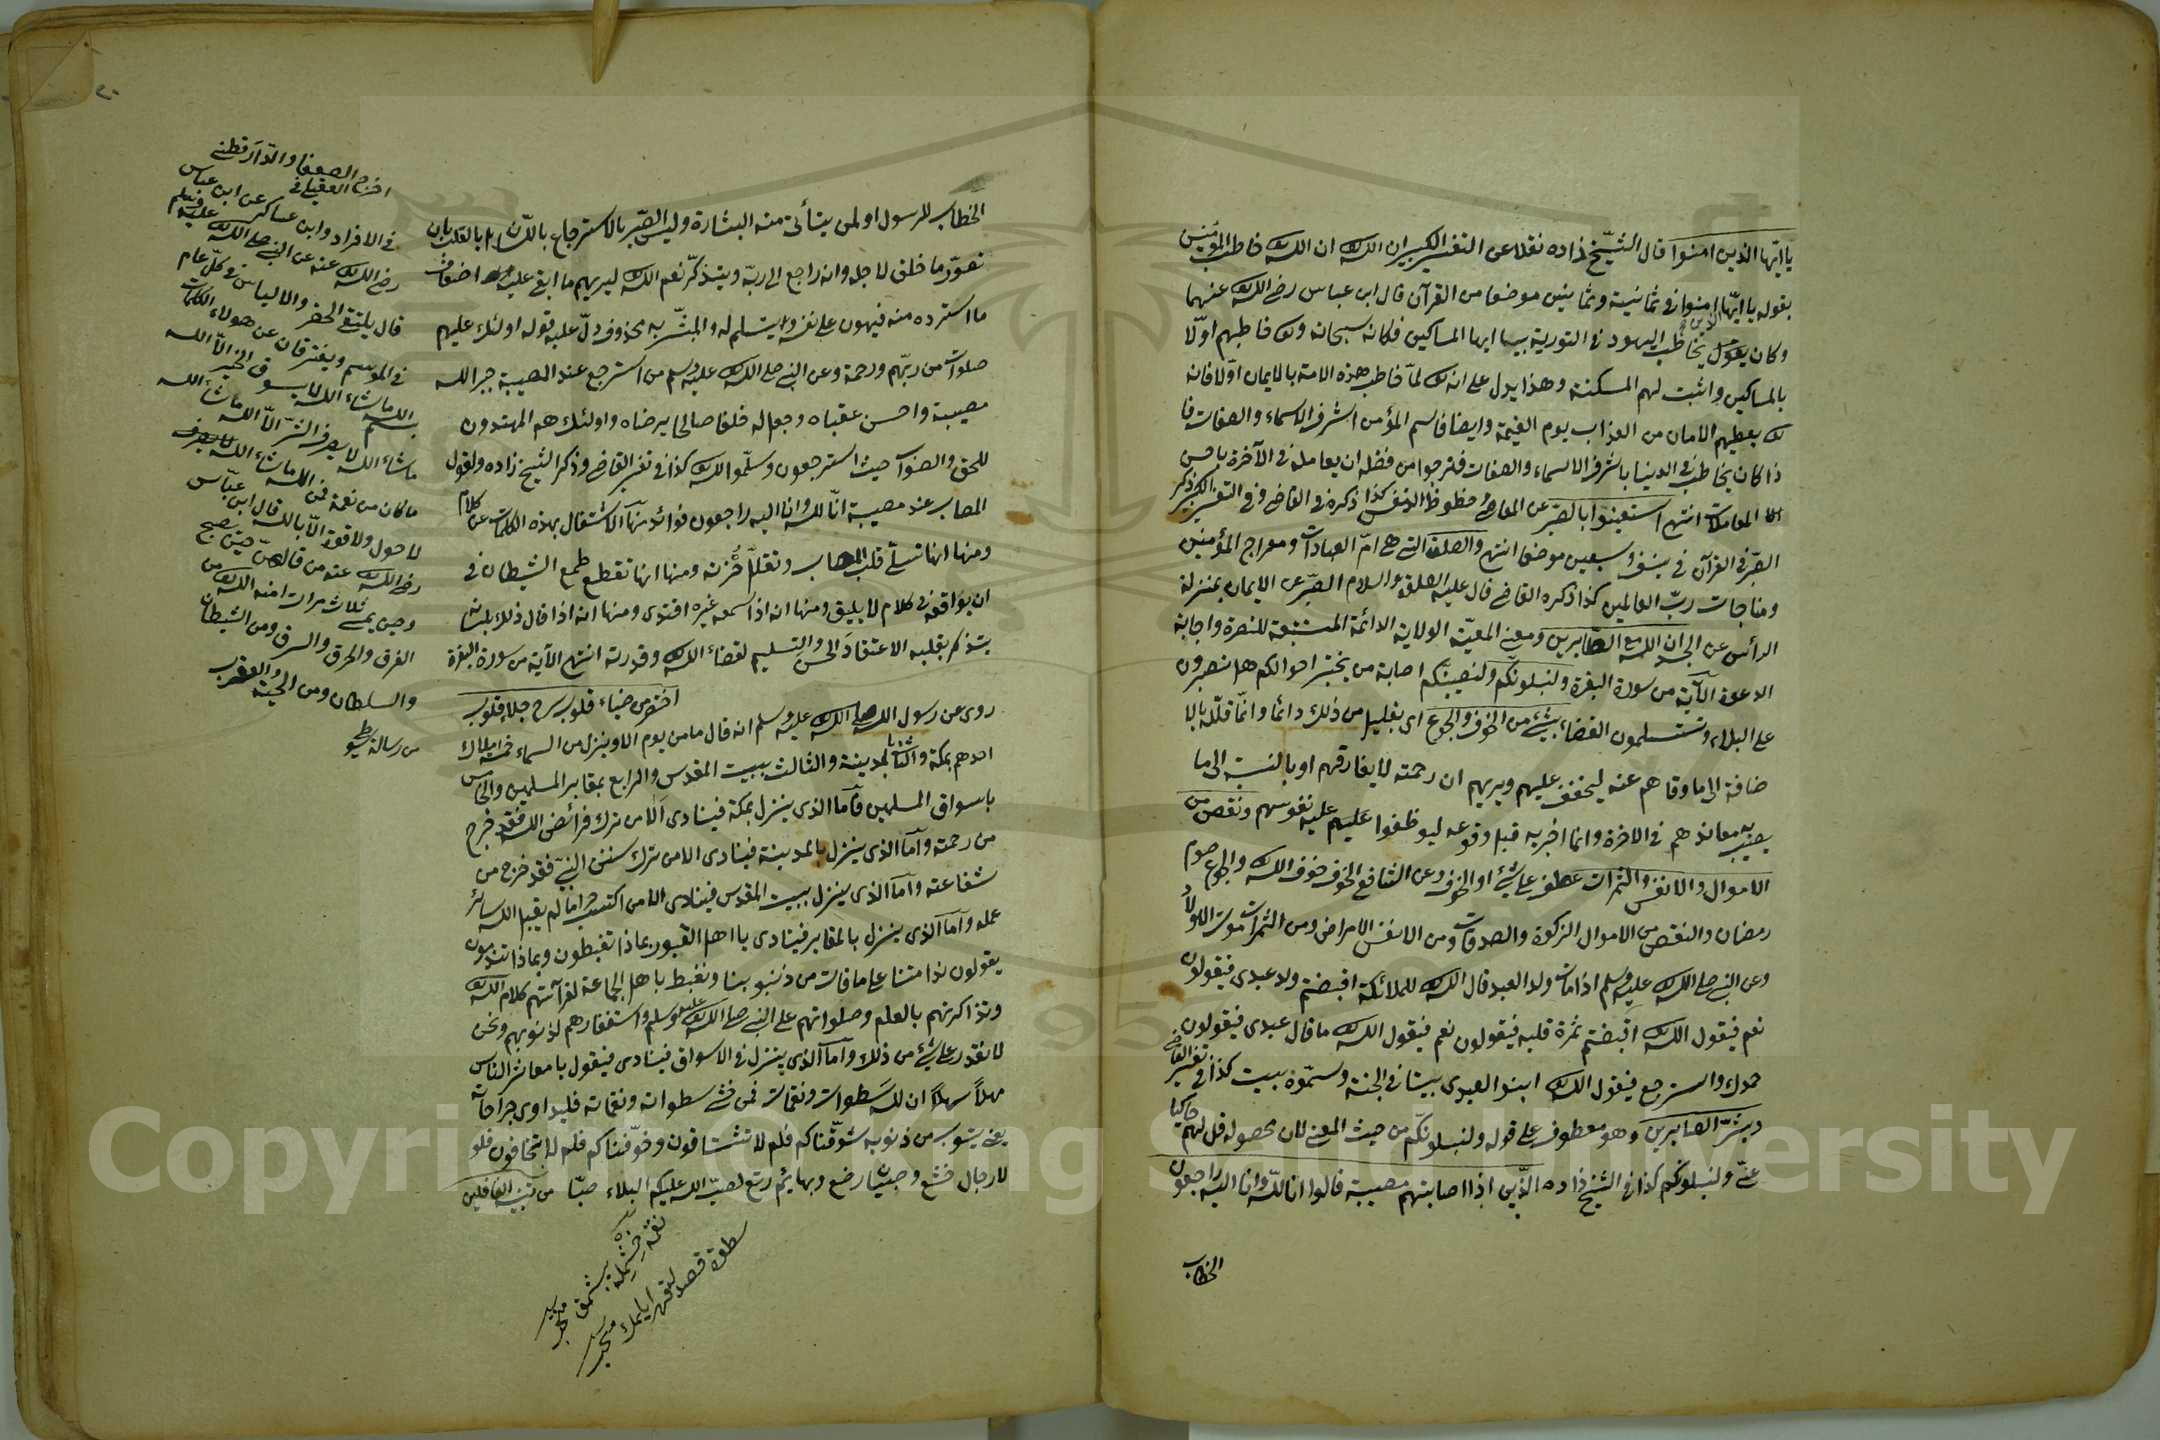 يا ايّها الذين امنوا قال الشيخ زاده نقلا عن التفسير الكبير ان الله تعالى خاطب المؤمنين
بقوله يا ايّها الذين امنوا في ثمانية وثمانين موضعا من القرآن قال ابن عباس رضى الله عنهما
وكان يخاطب اليهود في التورية بيا ايها المساكين فكانه سبحانه وتعالى خاطبهم اوّلا
بالمساكين واثبت لهم المسكنة وهذا يدل على انه تعالى لمّا خاطب هذه الامة بالايمان اوّلا فانه
تعالى يعطيهم الامان من العذاب يوم القيمة وايضا فاسم المؤمن اشرف الاسماء والصفات فا
ذا كان يخاطب في الدنيا باشرف الاسماء والصفات فنرجوا من فضله ان يعامله في الآخرة باحسن
المعاملات انتهى استعينوا بالصّبر عن المعاصي وحظوظ النفس كذا ذكره في القاضي وفي التفسير الكبير ذكر
الصّبر في القرآن في نيف وسبعين موضعا انتهى والصلوة التي هي امّ العبادات ومعراج المؤمنين
ومناجات ربّ العالمين كذا ذكره القاضي قال عليه الصلوة والسلام الصّبر من الايمان بمنزلة
الرأس من الجسد ان الله مع الصّابرين ومعنى المعيّة الولاية الدائمة المستتبعة للنصرة واجابة
الدعوة الآية من سورة البقرة ولنبلونّكم ولنصيبنّكم اصابة من يختبر احوالكم هل تصبرون
على البلاء وتستسلمون القضاء بشيء من الخوف والجوع اى بقليل من ذلك دائما وانّما قلّله بالا
ضافة الى ما وقاهم عنه ليخفف عليهم ويريهم ان رحمته لا يفارقهم او بالنسبة الى ما
يصيب به معاندهم في الاخرة وانما اخبر به قبل وقوعه ليوطّنوا عليه نفوسهم ونقص من
الاموال والانفس والثمرات عطف على شئ او الخوف وعن الشافعي الخوف خوف الله والجوع صوم
رمضان والنقص من الاموال الزكوة والصدقات ومن الانفس الامراض ومن الثمرات موت الاولاد
وعن النبي صلى الله عليه وسلم اذا مات ولد العبد قال الله للملائكة اقبضتم ولد عبدى فيقولون
نعم فيقول الله اقبضتم ثمرة قلبه فيقولون نعم فيقول الله ما قال عبدى فيقولون
حمدك واسترجع فيقول الله ابنوا لعبدى بيتا في الجنة وسمّوه بيت كذا في تفسير القاضي
وبشّر الصابرين وهو معطوف على قوله ولنبلونّكم من حيث المعنى لان محصوله قل لهم حاكيا
عنّي ولنبلونكم كذا في الشيخ زاده الّذين اذا اصابتهم مصيبة قالوا انا للّه وانا اليه راجعون
الخطاب
الخطاب للرسول او لمن يتأتى منه البشارة وليس الصّبر بالاسترجاع باللّسان بل بالقلب بان
تصوّر ما خلق لاجله وانه راجع الى ربّه ويتذكّر نعم الله ليريهم ما ابقى عليه اضعاف
ما استرده منه فيهون على نفسه ويستسلم له والمبشّر به محذوف دلّ عليه قوله اولئك عليهم
صلوات من ربّهم ورحمة وعن النبي صلى الله عليه وسلم من استرجع عند المصيبة جبر الله
مصيبته واحسن عقباه وجعل له خلفا صالحا يرضاه واولئك هم المهتدون
للحق والصّواب حيث استرجعون وسلّموا الله كذا في تفسير القاضي وذكر الشيخ زاده ولقول
المصاب عند مصيبة انّا للّه وانا اليه راجعون فوائد منها الاشتغال بهذه الكلمات عن كلام
ومنها انها تسلّي قلب المصاب وتقلّل حُزنه ومنها انها تقطع طمع الشيطان في
ان يوافقه في كلام لا يليق ومنها انه اذا سمعه غيره اقتدى ومنها انه اذا قال ذلك بلسانه
يتذكر بقلبه الاعتقاد الحسن والتسليم لقضاء الله وقدرته انتهى الآية من سورة البقرة
روى عن رسول الله صلى الله عليه وسلم انه قال ما من يوم الا وينزل من السماء خمسة املاك
احدهم بمكة والثاني بالمدينة والثالث ببيت المقدس والرابع بمقابر المسلمين والخامس
باسواق المسلمين فأمّا الذى ينزل بمكة فينادى اَلا من ترك فرائض الله فقد خرج
من رحمته وأمّا الذى ينزل بالمدينة فينادى الا من ترك سنن النبي فقد خرج من
شفاعته وأمّا الذى ينزل ببيت المقدس فينادى الا من اكتسب حراما لم يقبل الله سائر
عمله وأمّا الذى ينزل بالمقابر فينادى يا اهل القبور بماذا تغبطون وبماذا تندمون
يقولون ندامتنا على ما فات من ذنبو بنا ونغبط باهل الجماعة لقرآئتهم كلام الله
وتذاكرتهم بالعلم وصلواتهم على النبي صلى الله عليه وسلم واستغفارهم لذنوبهم ونحن
لا نقدر على شئ من ذلك وأمّا الذى ينزل في الاسواق فينادى فيقول يا معاشر الناس
مهلاً مهلاً ان للّه سَطوات ونقمات فمن خشى سطواته ونقماته فليداوى جراحاته
يعني يتوب من ذنوبه شوّقناكم فلم لا تشتاقون وخوّفناكم فلم لا تخافون فلو
لا رجال خشّع وصبيان رضع وبهايم رتع لصبّ الله عليكم البلاء صبّا من تنبيه الغافلين
اخرج العقيلي في الضعفا والدّارقطني
في الافراد وابن عساكر عن ابن عباس
رضى الله عنه عن النبي صلى الله عليه وسلم
قال يلتقي الخضر والالياس في كلّ عام
في الموسم ويفترقان عن هولاء الكلمات
بسم الله ما شاء الله لا يسوق الخير الّا الله
ما شاء الله لا يصرف الشرّ الّا الله ما شاء الله
ما كان من نعمة فمن الله ما شاء الله
لا حول ولا قوة الّا بالله قال ابن عبّاس
رضى الله عنه من قالهنّ حين يصبح
وحين يمسى ثلاث مرات امنه الله من
الغرق والحرق والسرق ومن الشيطان
والسلطان ومن الحية والعقرب
من رسالة سيوطي